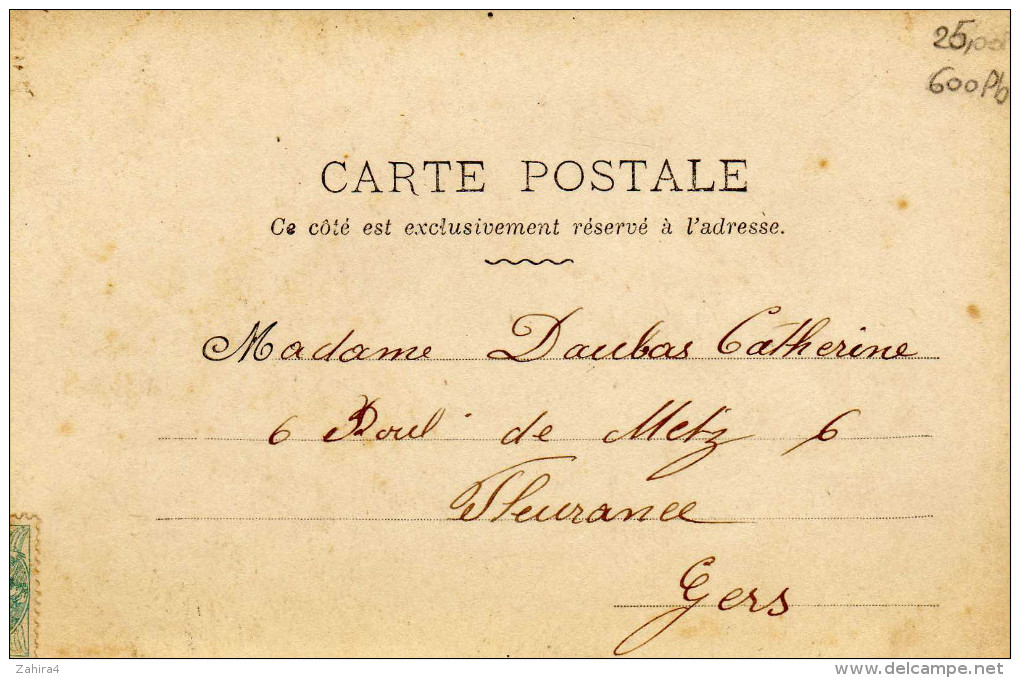 25,00
600Pb
CARTE POSTALE
Ce côté est exclusivement réservé à l'adresse.
Madame Daubas Catherine
6 Boul de Metz 6
Fleurance
Gers
Zahira4
www.delcampe.net